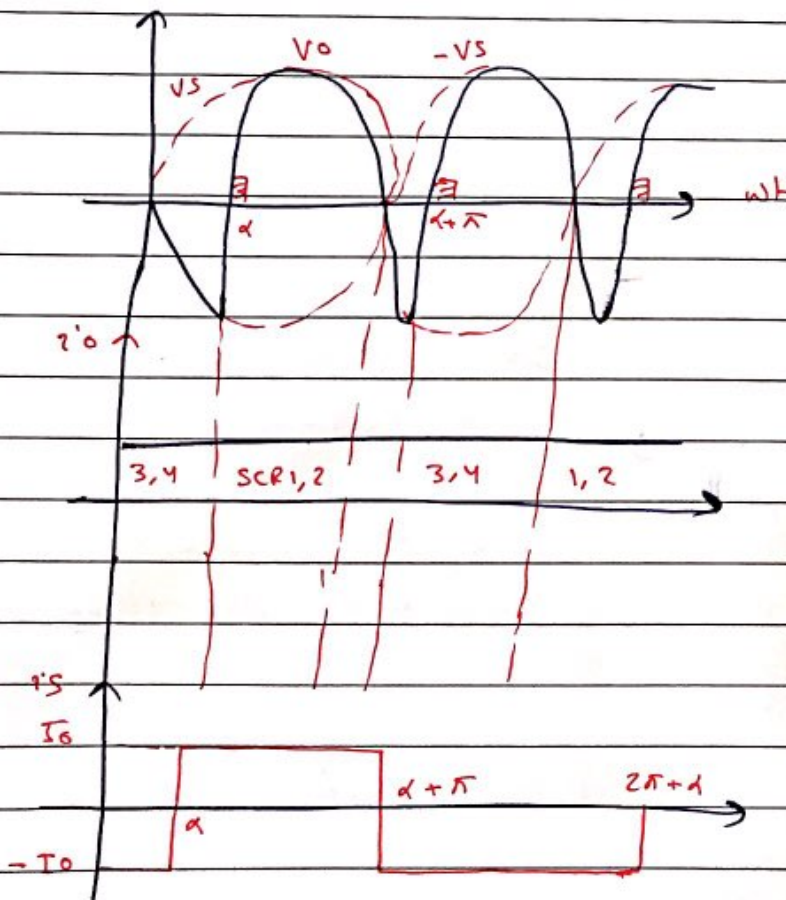 VO
-VS
VS
wt
α
α+π
io
3,4 SCR1,2 3,4 1,2
is
Io
α+π 2π+α
α
-Io